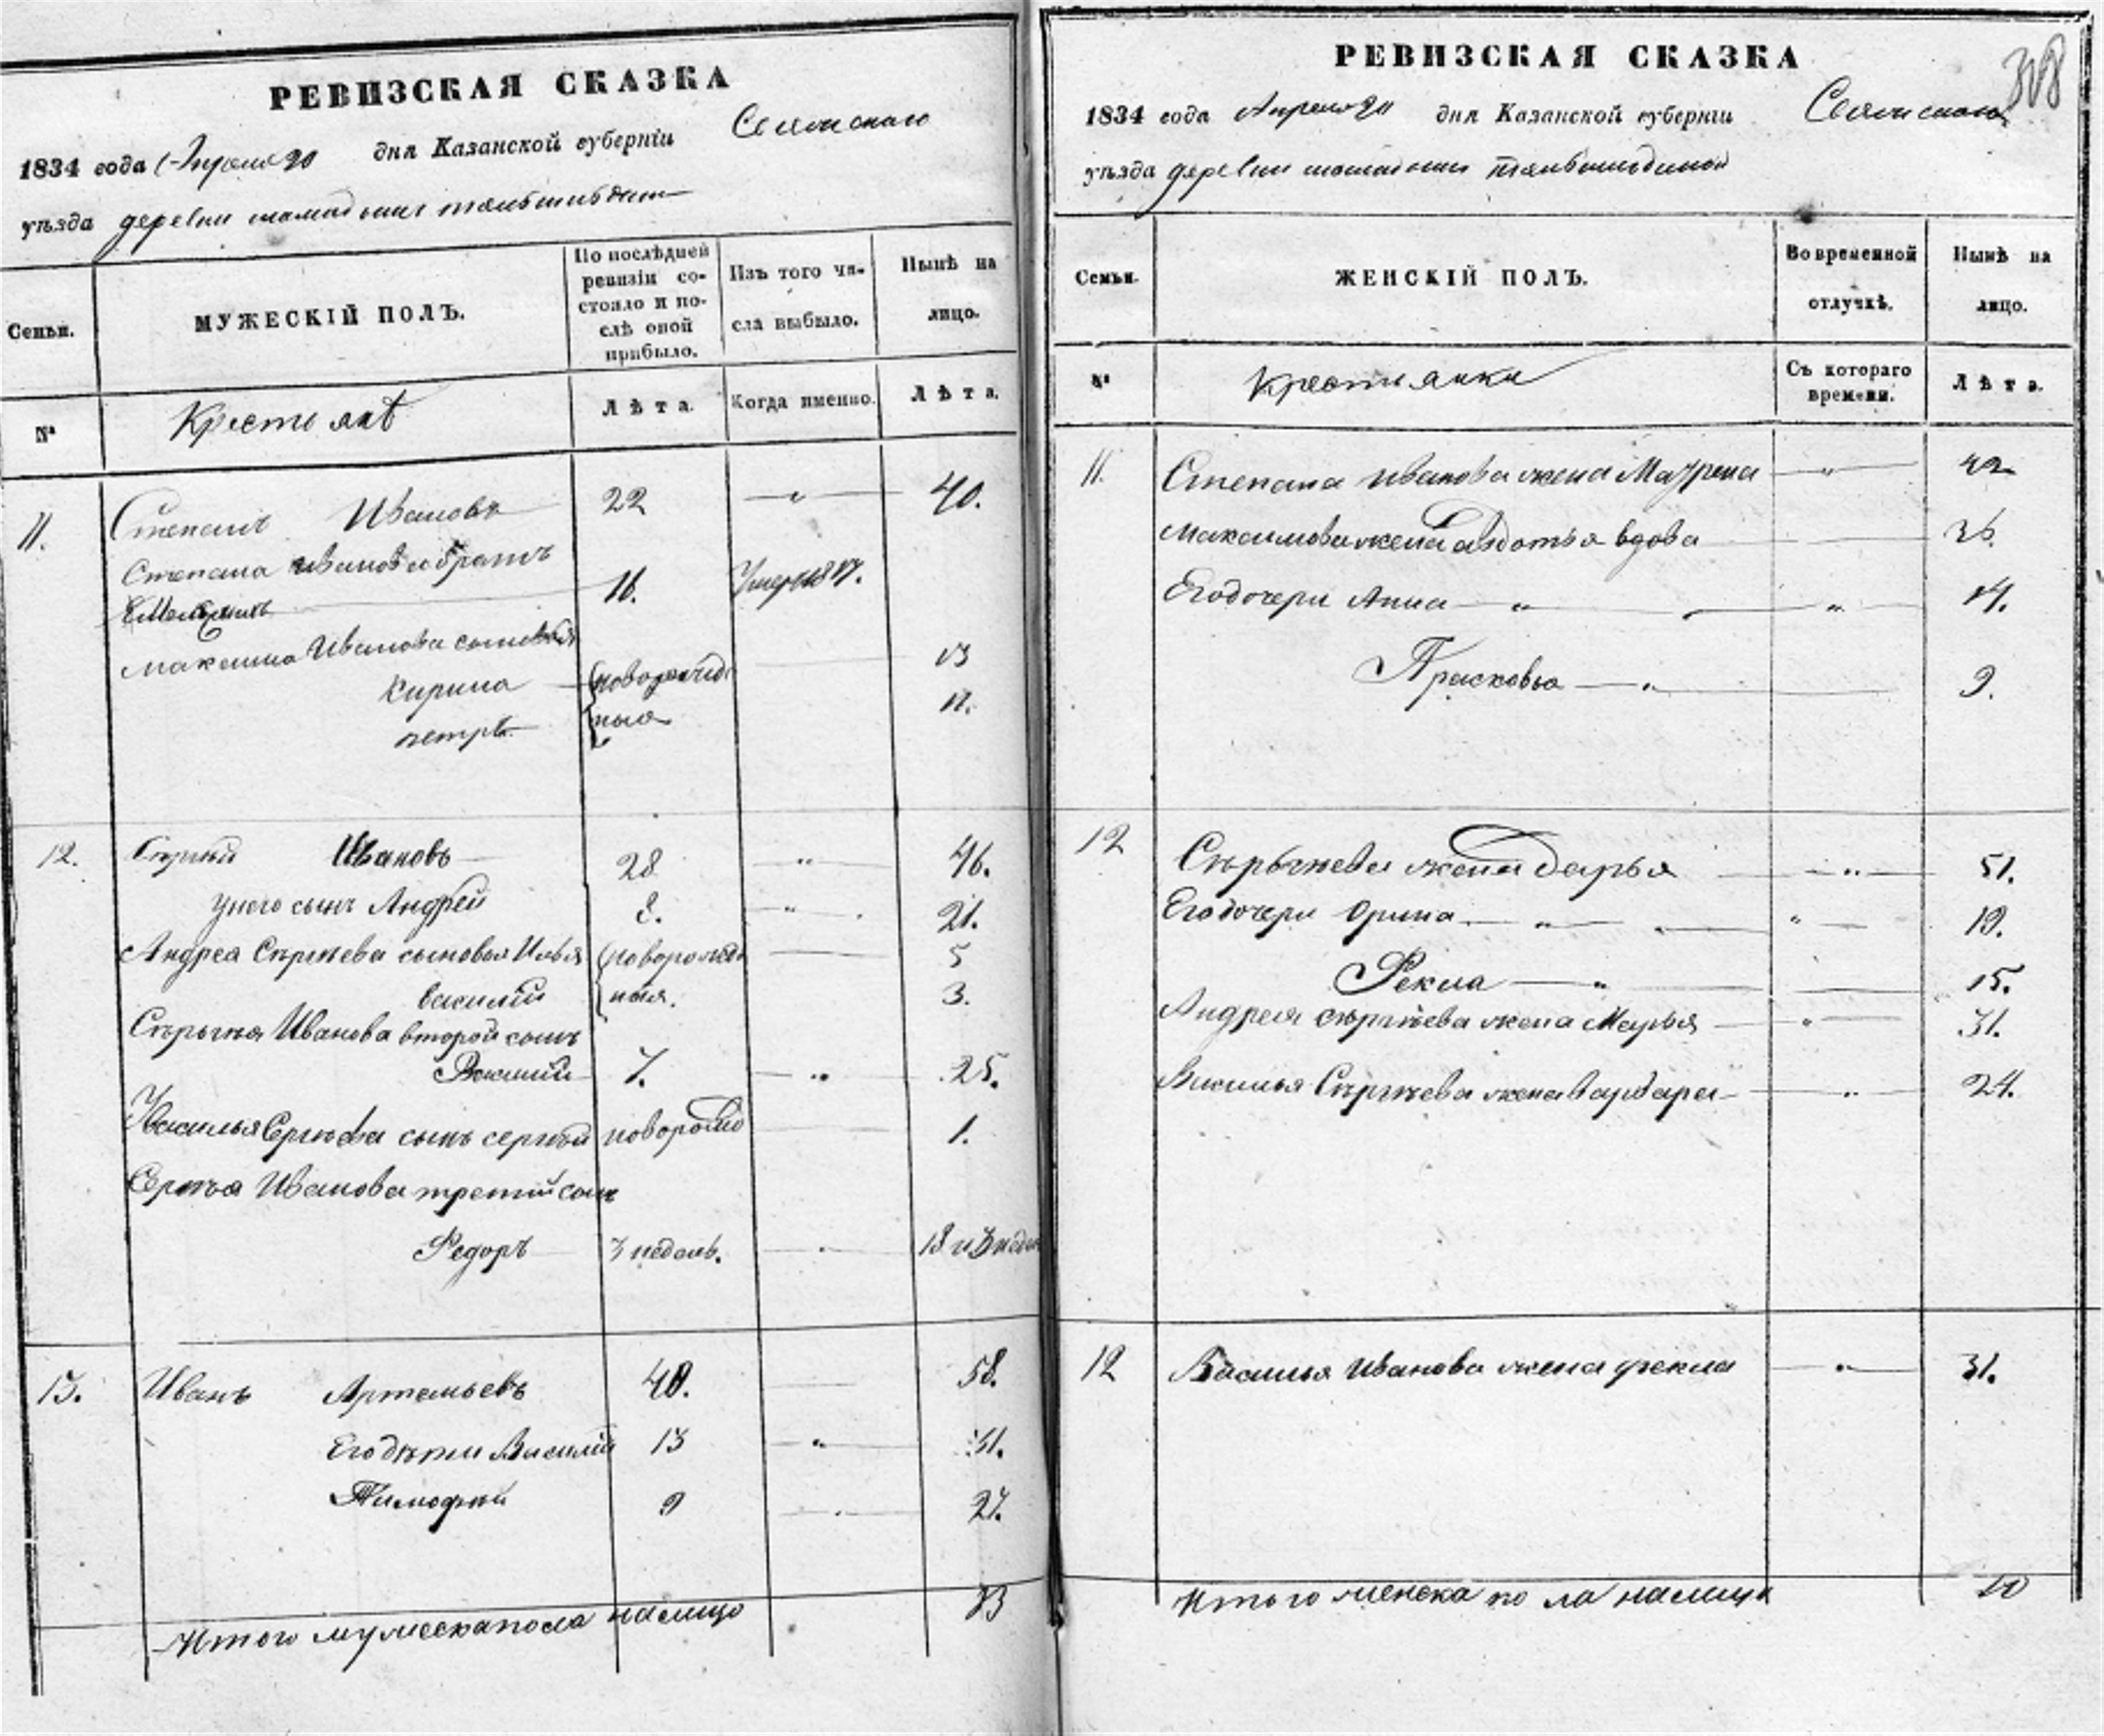 РЕВИЗСКАЯ СКАЗКА
1834 года Апреля 20 дня Казанской губерніи Свіяжскаго
уѣзда деревни
Семьи.
МУЖЕСКІЙ ПОЛЪ.
По послѣдней ревизіи состояло и послѣ оной прибыло.
Изъ того числа выбыло.
Нынѣ на лицо.
№
Крестьянѣ
Лѣта.
Когда именно.
Лѣта.
11. Степанъ Ивановъ 22 — „ — 40.
Степана Иванова братъ
16. Умеръ 18
Максима Иванова сыновья
Кирила новорожде 13
петръ ныя 11.
12. Сергѣй Ивановъ 28 „ 46.
у него сынъ Андрей 3. „ 21.
Андрея Сергѣева сыновья Илья новорожде 5
василій ныя. 3.
Сергѣя Иванова второй сынъ
Василій 7. „ 25.
Василья Сергѣева сынъ сергѣй новорожде 1.
Сергѣя Иванова третій сынъ
Федоръ 3 недель. 18 и 3 недел
13. Иванъ Артемьевъ 40. 58.
Его дѣти Василій 13 „ 31.
Тимофѣй 9 27.
Итого мужеска пола налицо 13
308
РЕВИЗСКАЯ СКАЗКА
1834 года Апреля 20 дня Казанской губерніи Свіяжскаго
уѣзда деревни
Семьи.
ЖЕНСКІЙ ПОЛЪ.
Во временной отлучкѣ.
Нынѣ на лицо.
№
Крестьянки
Съ котораго времени.
Лѣта.
11. Степана Иванова жена Маурена — „ — 42
Максимова жена авдотья вдова 36.
Его дочери Анна — „ „ 14.
Прасковья — „ 9.
12 Сергѣева жена дарья „ 51.
Его дочери Орина — „ „ 19.
Фекла — „ 15.
Андрея сергѣева жена Марья „ 31.
Василья Сергѣева жена варвара „ 24.
12 Василья Иванова жена фекла „ 31.
Итого женска пола налицо 10